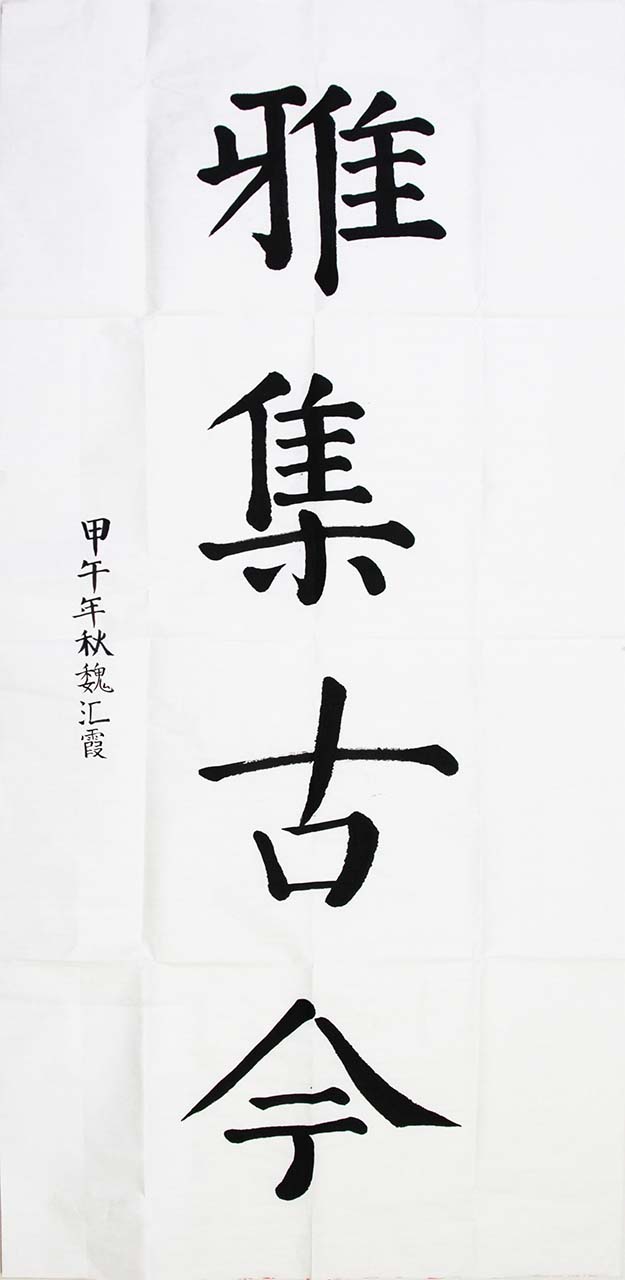 雅集古今
甲午年秋魏汇霞